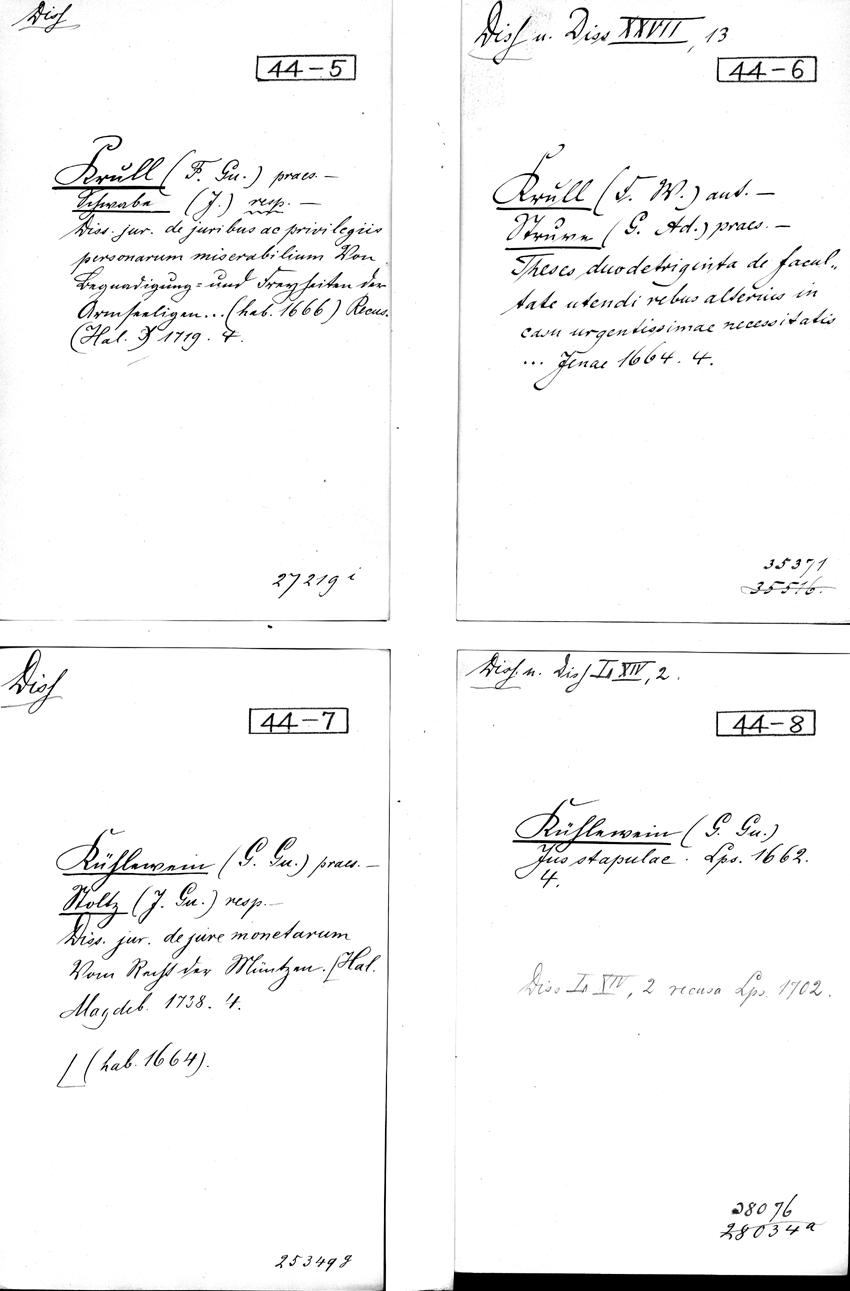 Diss
44-5
Krull (F. Gu.) praes. —
Schwabe (J.) resp. —
Diss. jur. de juribus ac privilegiis
personarum miserabilium Von
Begnadigung= und Freyheiten der
Armseeligen... (hab. 1666) Recus.
(Hal.) 1719. 4.
27219 i
Diss u. Diss XXVII, 13
44-6
Krull (F. W.) aut. —
Struve (G. Ad.) praes. —
Theses duodetriginta de facul=
tate utendi rebus alterius in
casu urgentissimae necessitatis
... Jenae 1664. 4.
35371
35516.
Diss
44-7
Kühlewein (G. Gu.) praes. —
Stoltz (J. Gu.) resp. —
Diss. jur. de jure monetarum
Vom Recht der Müntzen. (Hal.
Magdeb. 1738. 4.
(hab. 1664).
25349 g
Diss. u. Diss LXIV, 2.
44-8
Kühlewein (G. Gu.)
Jus stapulae. Lps. 1662.
4.
Diss LXIV, 2 recusa Lps. 1702.
28076
28034 a